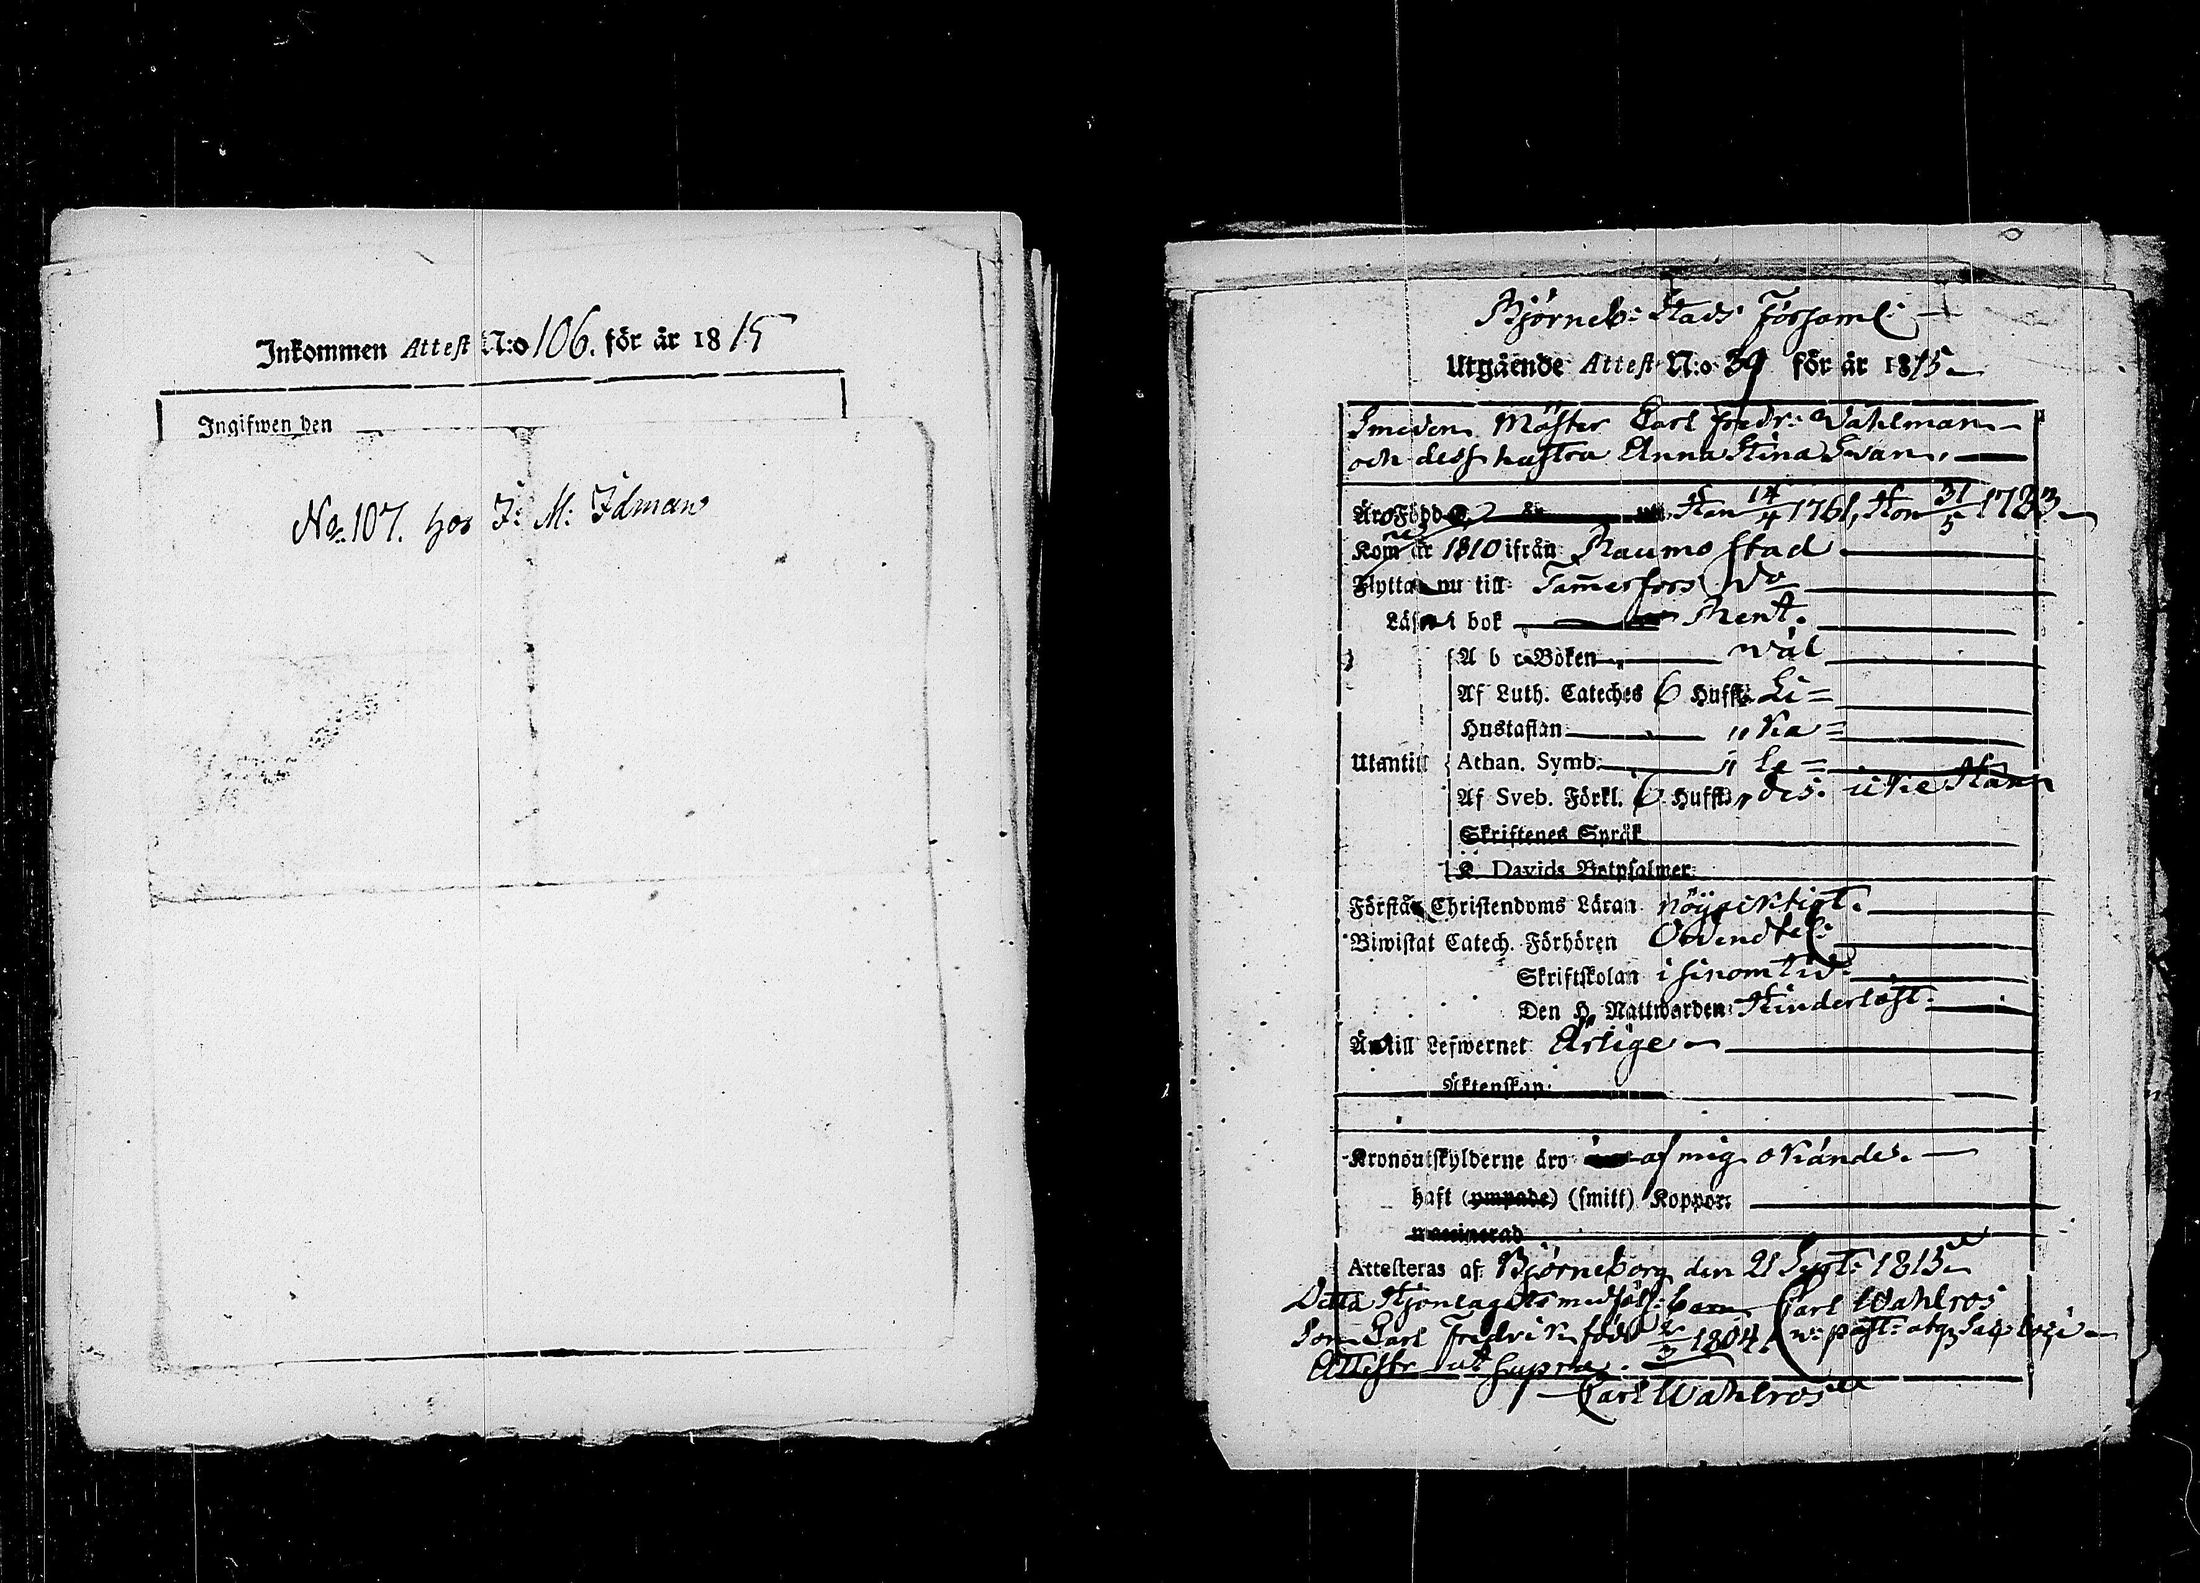 Inkommen Attest N:o 106. för är 1815
Ingifwen den
No. 107. hos J: M: Idman
Björneb: Stads Församl:
Utgående Attest N:o 39 för år 1815
Smeden Mäster Carl Fredr: Wahlman
och dess hustru Anna Stina Svan,
Äro Född Han 14/4 1761, Hon 31/5 1783
Kom år 1810 ifrån Raumo stad
Flytta nu till Tammerfors do
Läsa i bok Rent.
A b c-Boken wäl
Af Luth. Cateches 6 Hufst. Li=
Hustaflan ka=
Utantill Athan. Symb. le=
Af Sveb. Förkl. 6 Hufst. des. icke Han
Skriftenes Språk
K. Davids Botpsalmer
Förstå Christendoms Läran nöijacktigt.
Biwistat Catech. Förhören Owendtel:
Skriftskolan i sinom tid
Den H. Nattwarden Hinderlöst
Ä till Lefwernet Ärlige
Äktenskap
Kronoutskylderne äro af mig okände.
haft (ympade) (smitt) Koppor
vaccinerad
Attesteras af Björneborg den 21 Sept: 1815
Detta Hjonlaget medföljer barn Carl Wahlros
Son Carl Fredrik född 1804. v: past: atq
Attestr ut supra.
Carl Wahlros